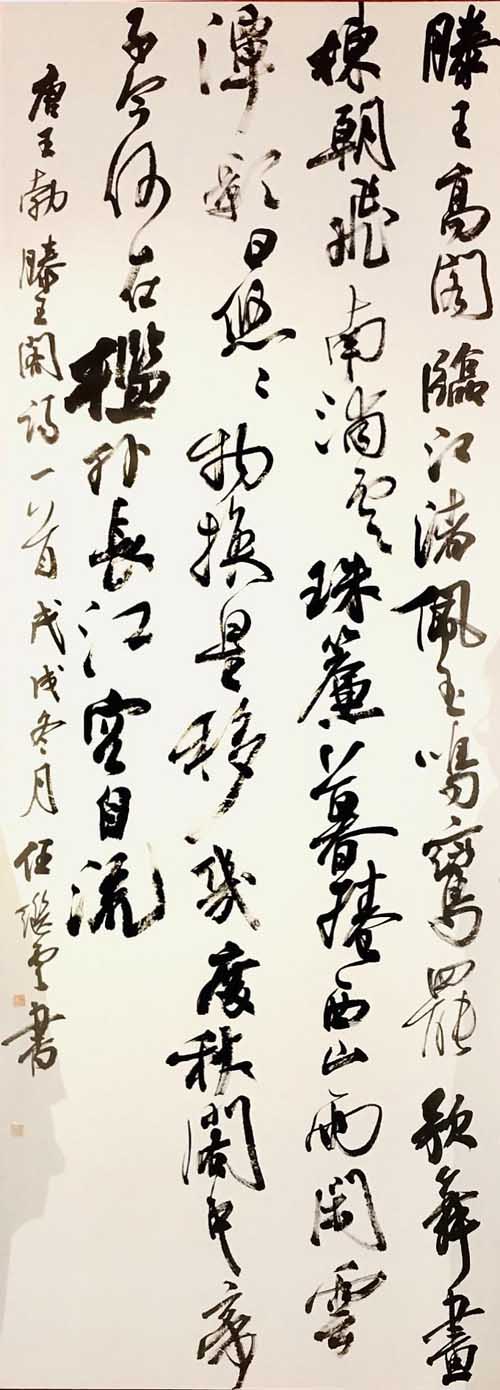 滕王高閣臨江渚佩玉鳴鸞罷歌舞畫
棟朝飛南浦雲珠簾暮捲西山雨閑雲
潭影日悠〻物換星移幾度秋閣中帝
子今何在檻外長江空自流
唐王勃滕王閣詩一首戊戌冬月任繼雲書